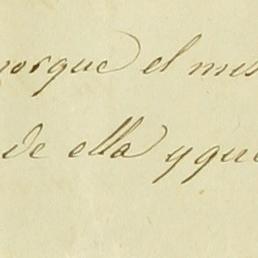 porque el mes
de ella y que